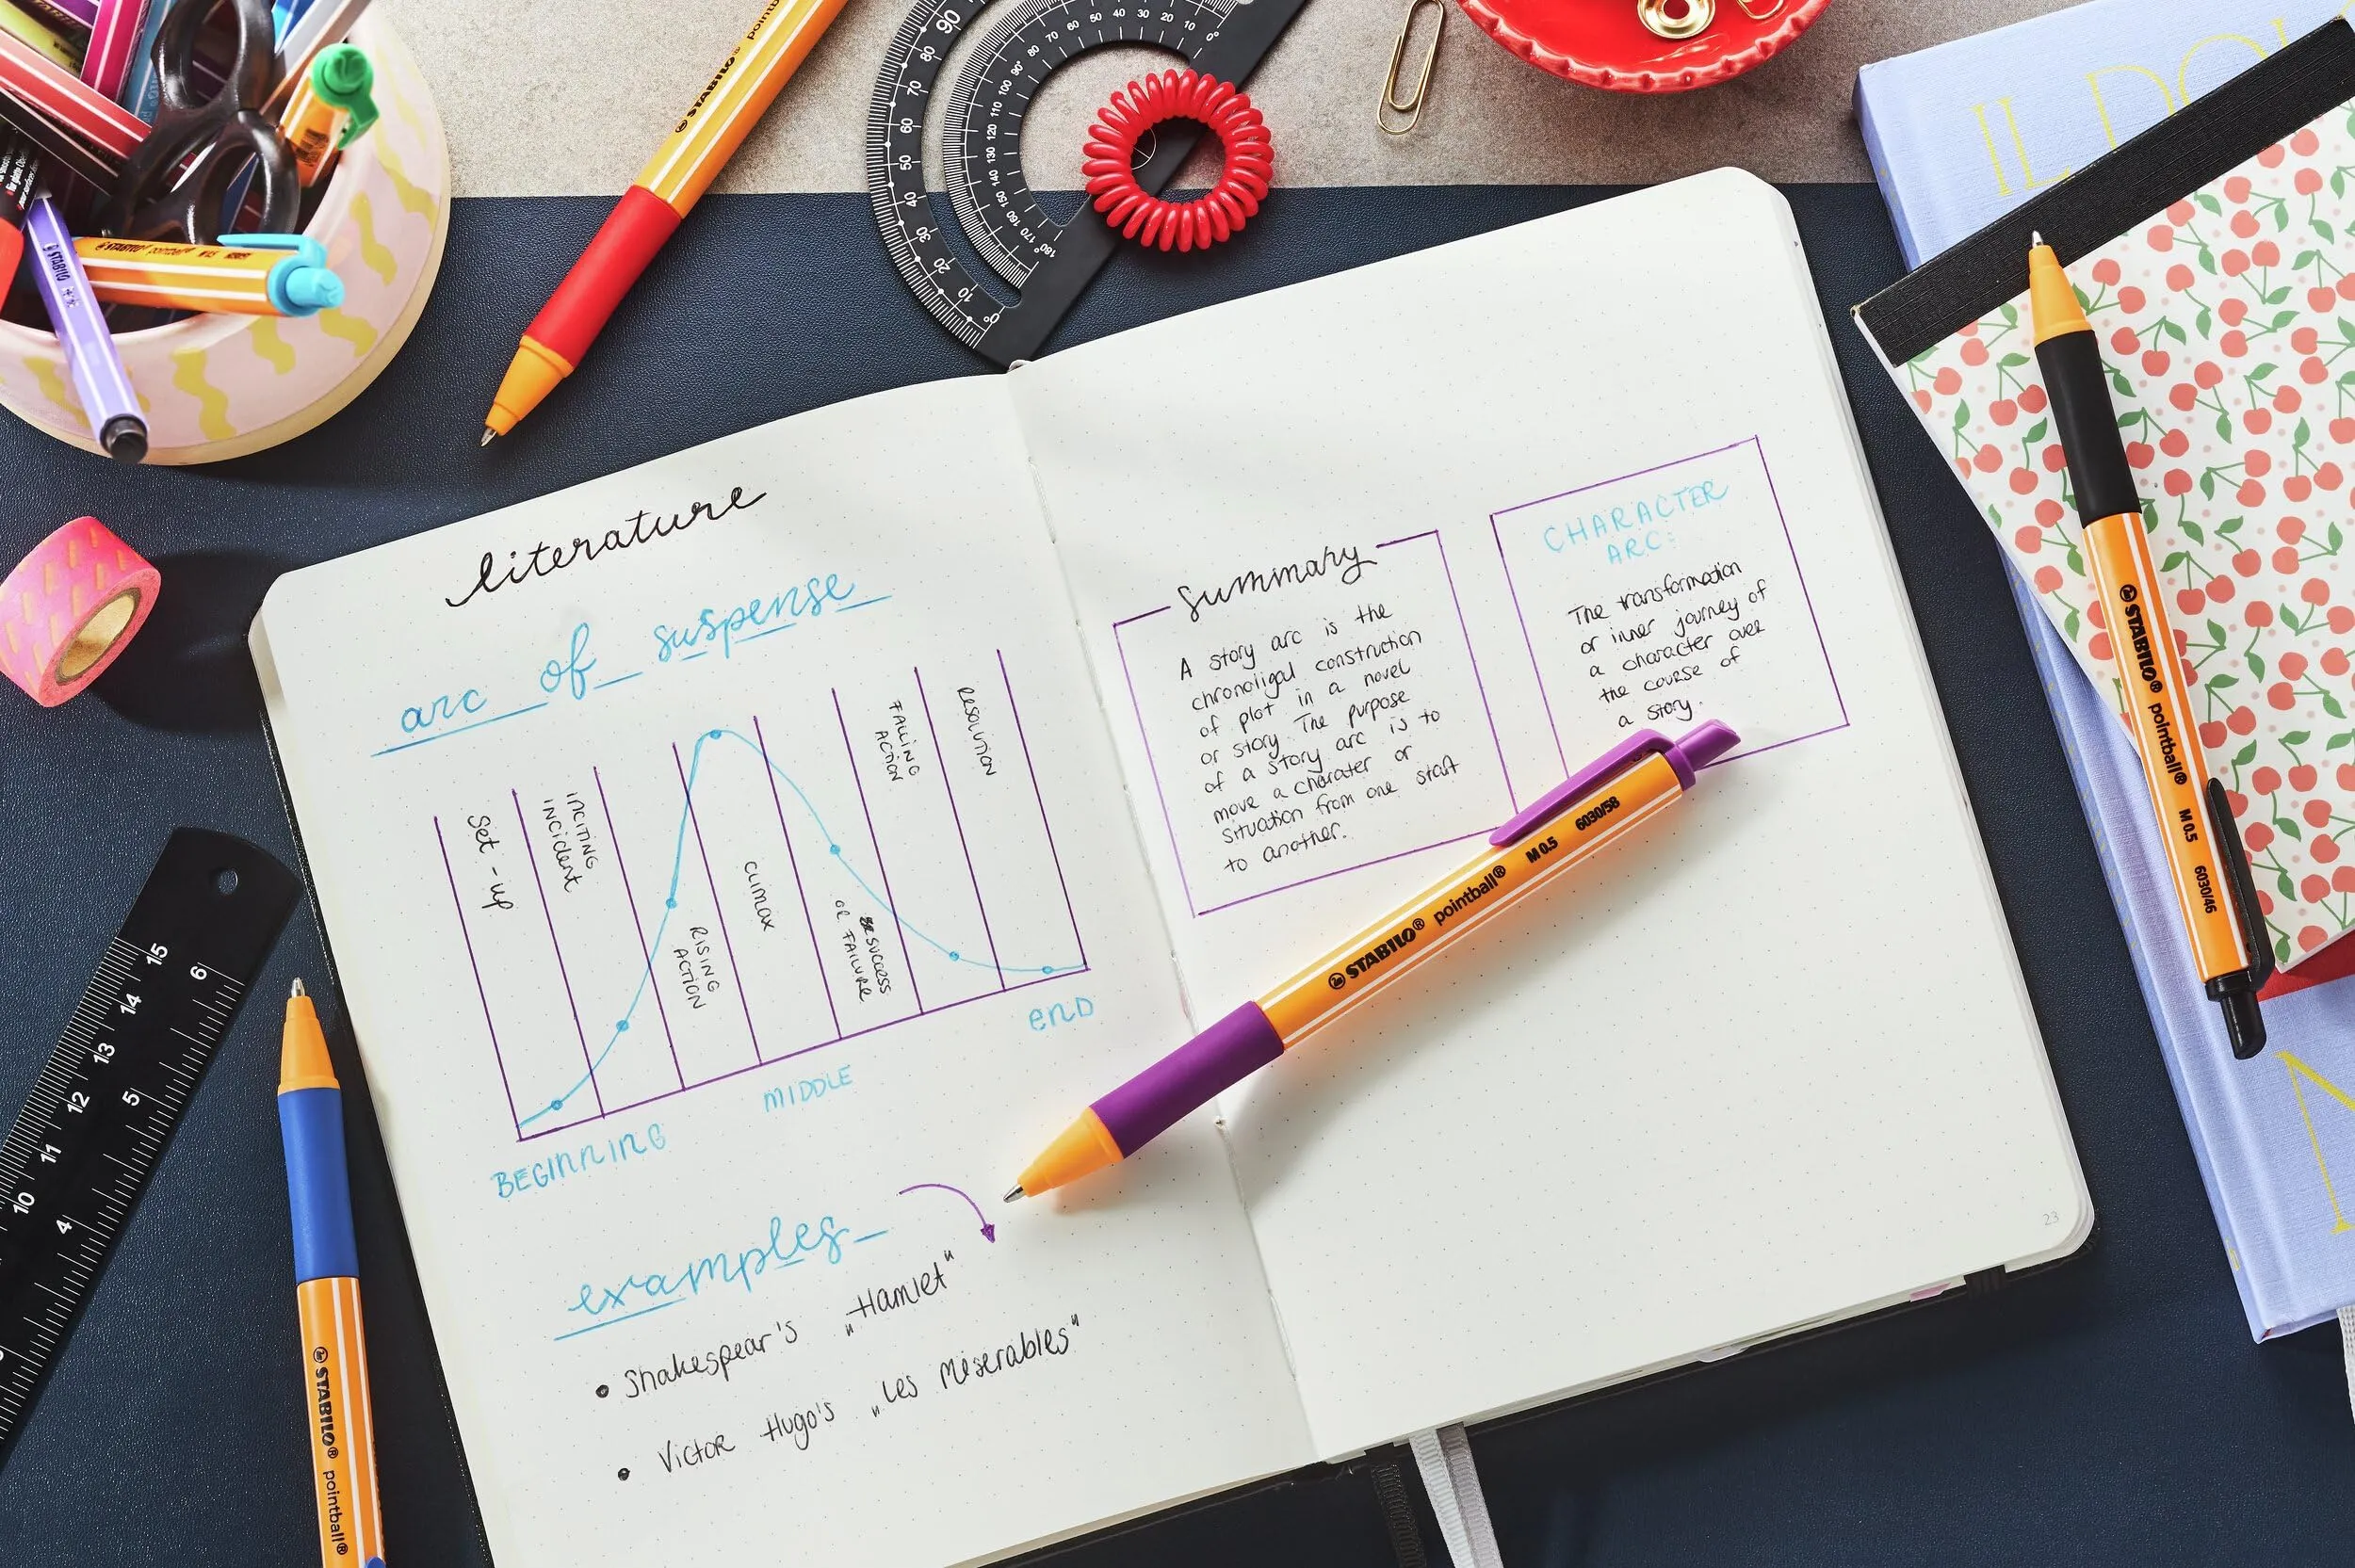 literature
arc of suspense
Set-up
INCITING
INCIDENT
RISING
ACTION
CLIMAX
SUCCESS
OR FAILURE
FALLING
ACTION
RESOLUTION
BEGINNING
MIDDLE
END
examples
• Shakespear's „Hamlet"
• Victor Hugo's „Les Miserables"
summary
A story arc is the
chronoligal construction
of plot in a novel
or story. The purpose
of a story arc is to
move a charater or
situation from one start
to another.
CHARACTER
ARC:
The transformation
or inner journey of
a character over
the course of
a story.
23
STABILO® pointball® M 0.5 6030/58
STABILO® pointball® M 0.5 6030/46
STABILO® pointball®
STABILO® pointball
STABILO pointball
STABILO
IL DO
15
14
13
12
11
10
6
5
4
90
80
70
60
50
40
30
20
10
0°
0°
10
20
30
40
50
60
70
80
90°
100
110
120
130
140
150
160
170
180°